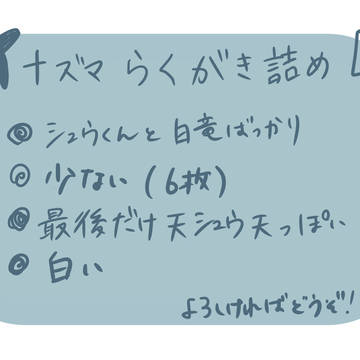 ナズマ らくがき詰め
シュウくんと白竜ばっかり
少ない(6枚)
最後だけ天シュウ天っぽい
白い
よろしければどうぞ!